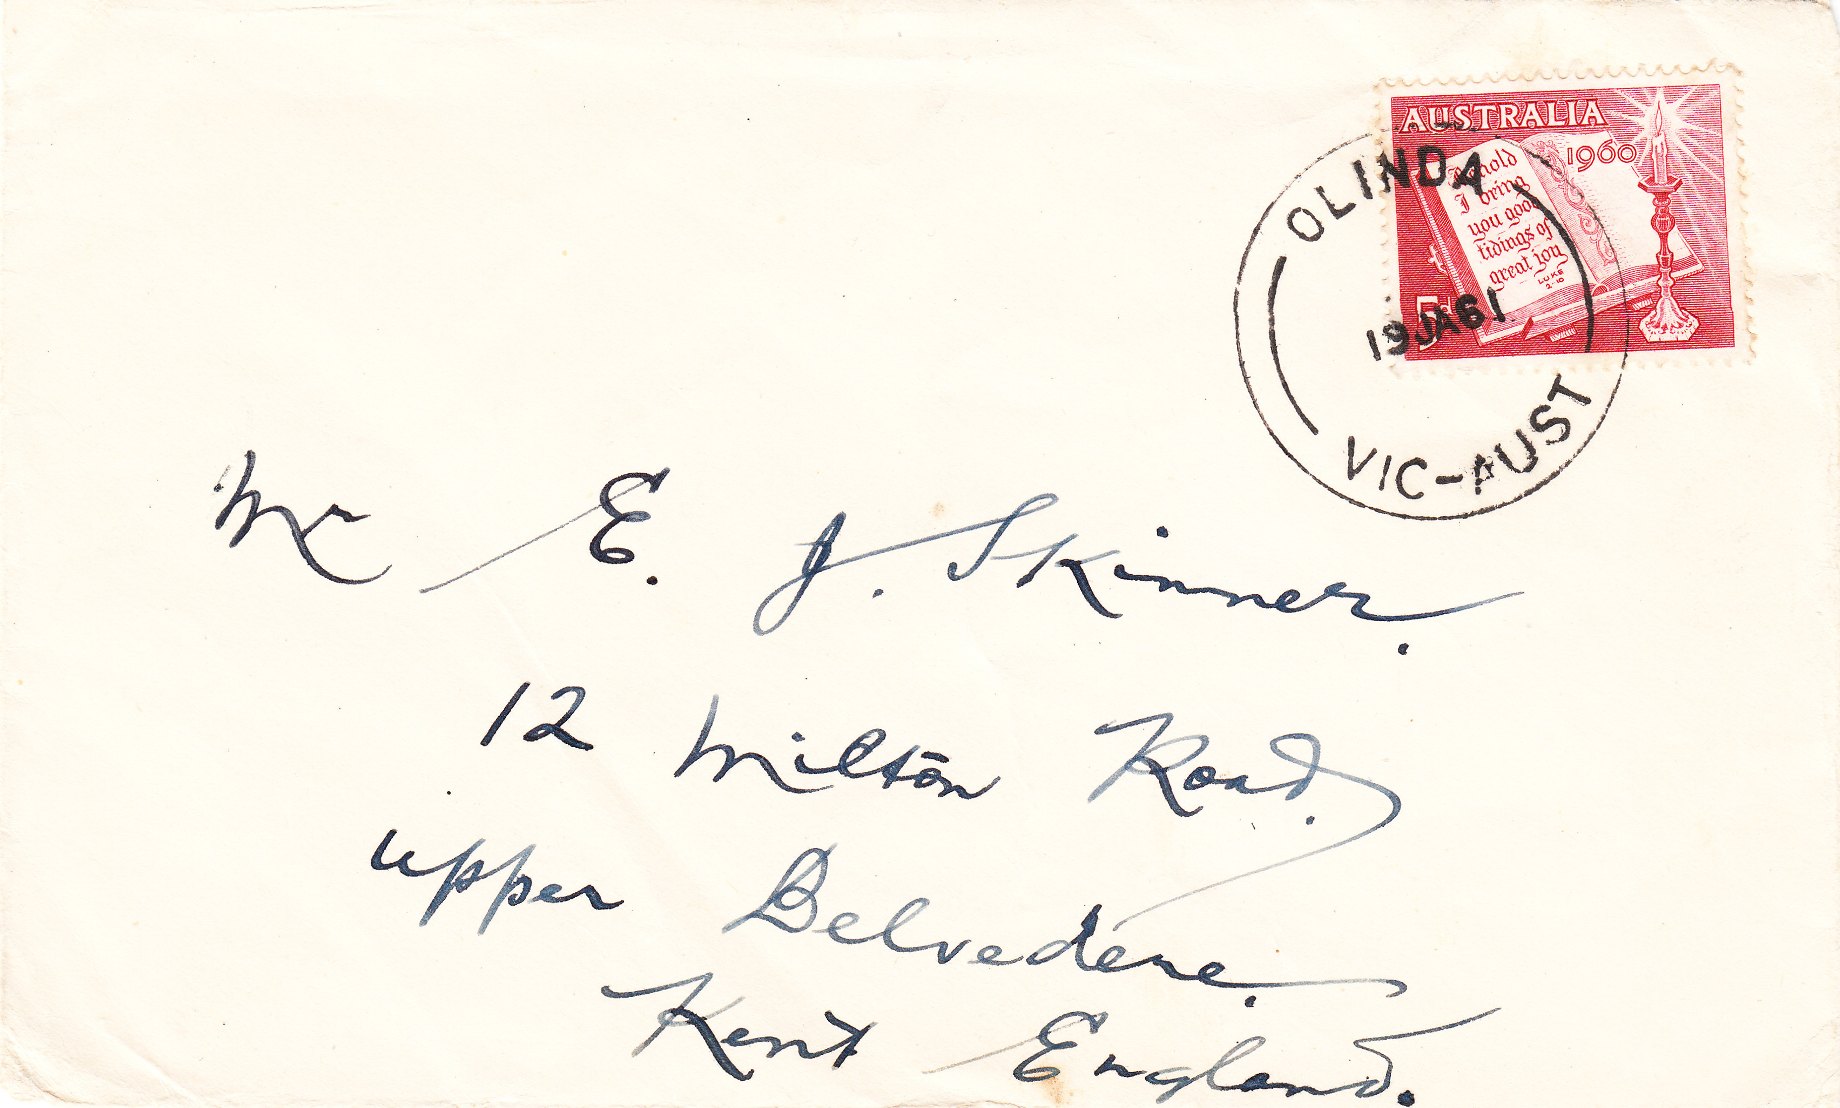 AUSTRALIA
1960
Behold
I bring
you good
tidings of
great joy
LUKE
2-10
5d
OLINDA
19 JA 61
VIC-AUST
Mr E. J. Skinner.
12 Milton Road.
upper Belvedere.
Kent England.